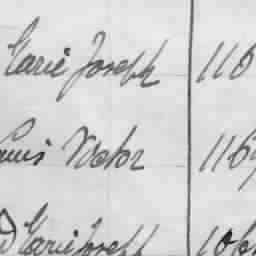 Carié Joseph 116
Louis Victor 116
Carié Joseph 106